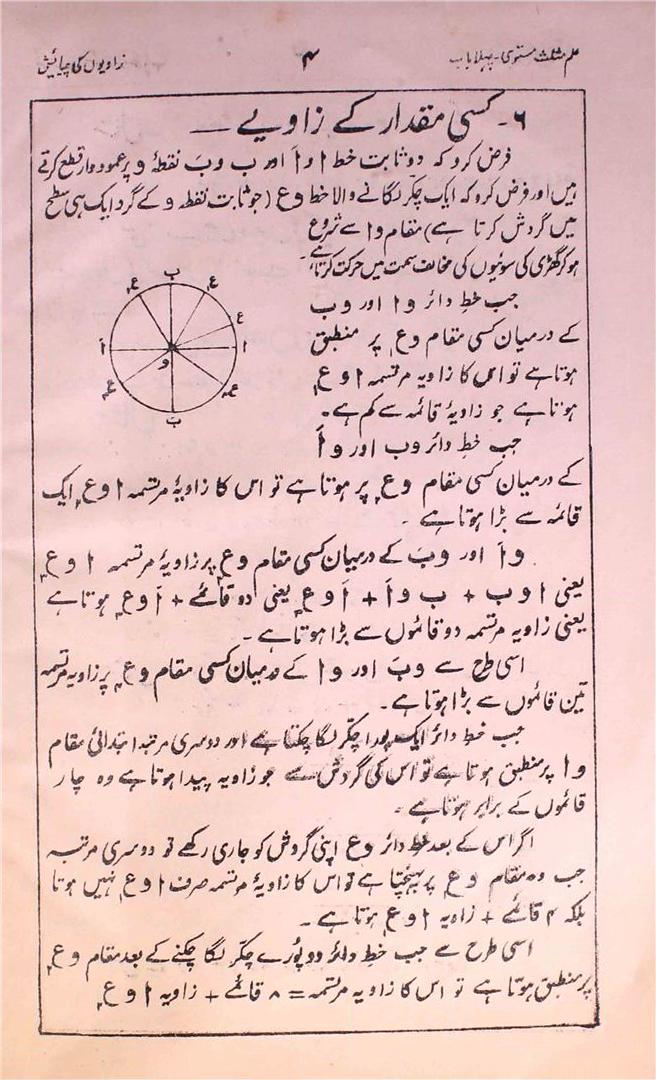 علم مثلث مستوی۔ پہلا باب
۴
زاویوں کی پیمائش
۶۔ کسی مقدار کے زاویے ۔
فرض کرو کہ دو ثابت خط ا و اَ اور ب و بَ نقطۂ و پر عموداً قطع کرتے
ہیں اور فرض کرو کہ ایک چکر لگانے والا خط و ع (جو ثابت نقطہ و کے گرد ایک ہی سطح
میں گردش کرتا ہے) مقام و ا سے شروع
ہوکر گھڑی کی سوئیوں کی مخالف سمت میں حرکت کرتا ہے۔
جب خط دائر و ا اور و ب
کے درمیان کسی مقام و ع۱ پر منطبق
ہوتا ہے تو اس کا زاویہ مرتسمہ ا و ع۱
ہوتا ہے جو زاویۂ قائمہ سے کم ہے۔
جب خط دائر و ب اور و اَ
ب
ع
ع
ع
اَ
ا
و
ع
ع
بَ
کے درمیان کسی مقام و ع۲ پر ہوتا ہے تو اس کا زاویۂ مرتسمہ ا و ع۲ ایک
قائمہ سے بڑا ہوتا ہے ۔
و اَ اور و بَ کے درمیان کسی مقام و ع۳ پر زاویۂ مرتسمہ ا و ع۳
یعنی ا و ب + ب و اَ + اَ و ع۳ یعنی دو قائمے + اَ و ع۳ ہوتا ہے
یعنی زاویہ مرتسمہ دو قائموں سے بڑا ہوتا ہے ۔
اسی طرح سے و بَ اور و ا کے درمیان کسی مقام و ع۴ پر زاویہ مرتسمہ
تین قائموں سے بڑا ہوتا ہے ۔
جب خط دائر ایک پورا چکر لگا چکتا ہے اور دوسری مرتبہ ابتدائی مقام
و ا پر منطبق ہوتا ہے تو اس کی گردش سے جو زاویہ پیدا ہوتا ہے وہ چار
قائموں کے برابر ہوتا ہے ۔
اگر اس کے بعد خط دائر و ع اپنی گردش کو جاری رکھے تو دوسری مرتبہ
جب وہ مقام و ع۱ پر پہنچتا ہے تو اس کا زاویۂ مرتسمہ صرف ا و ع۱ نہیں ہوتا
بلکہ ۴ قائمے + زاویہ ا و ع۱ ہوتا ہے ۔
اسی طرح سے جب خط دائر دو پورے چکر لگا چکنے کے بعد مقام و ع۱
پر منطبق ہوتا ہے تو اس کا زاویہ مرتسمہ = ۸ قائمے + زاویہ ا و ع۱